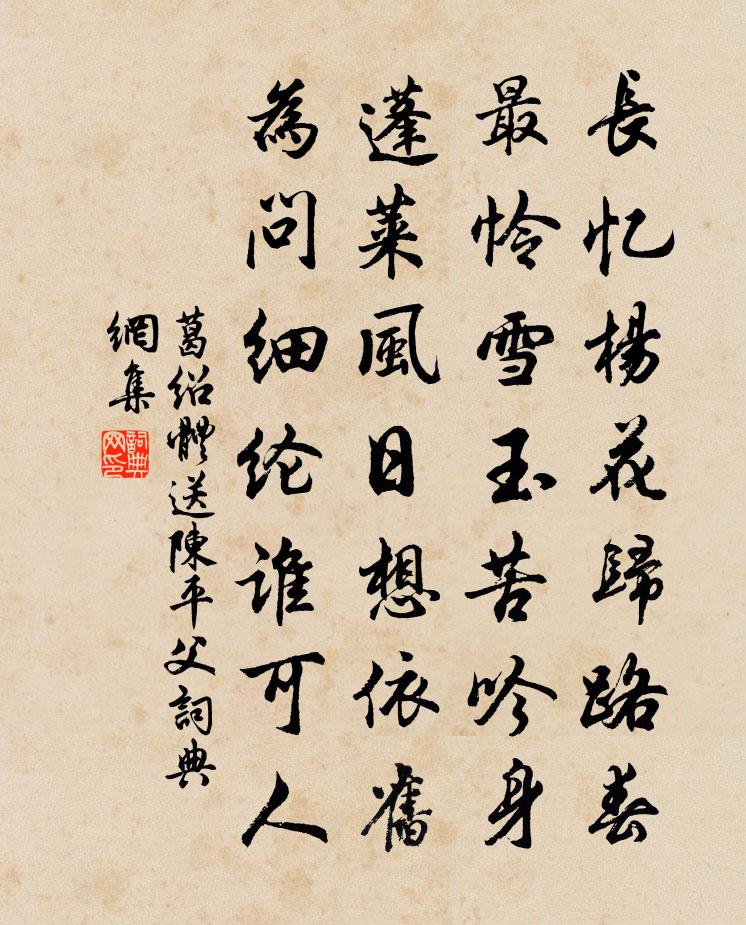 長忆楊花歸路春
最怜雪玉苦吟身
蓬萊風日想依舊
為問细纶谁可人
葛绍體送陳平父詞典
網集
詞典
网印